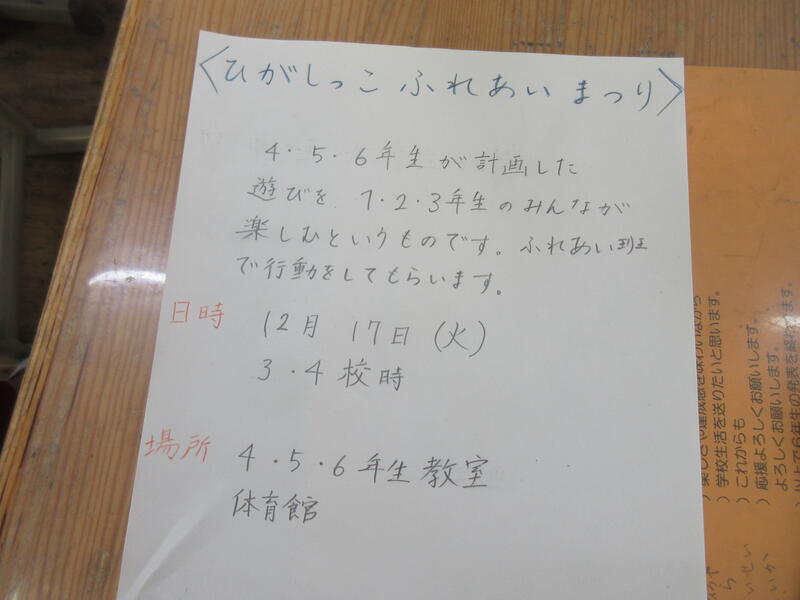 〈ひがしっこ ふれあい まつり〉
4・5・6年生が計画した
遊びを 1・2・3年生のみんなが
楽しむというものです。ふれあい班
で行動をしてもらいます。
日時
12月 17日(火)
3・4校時
場所
4・5・6年生教室
体育館
)学校生活を送りたいと思います。
)これからも
)応援よろしくお願いします。
よろしくお願いします。